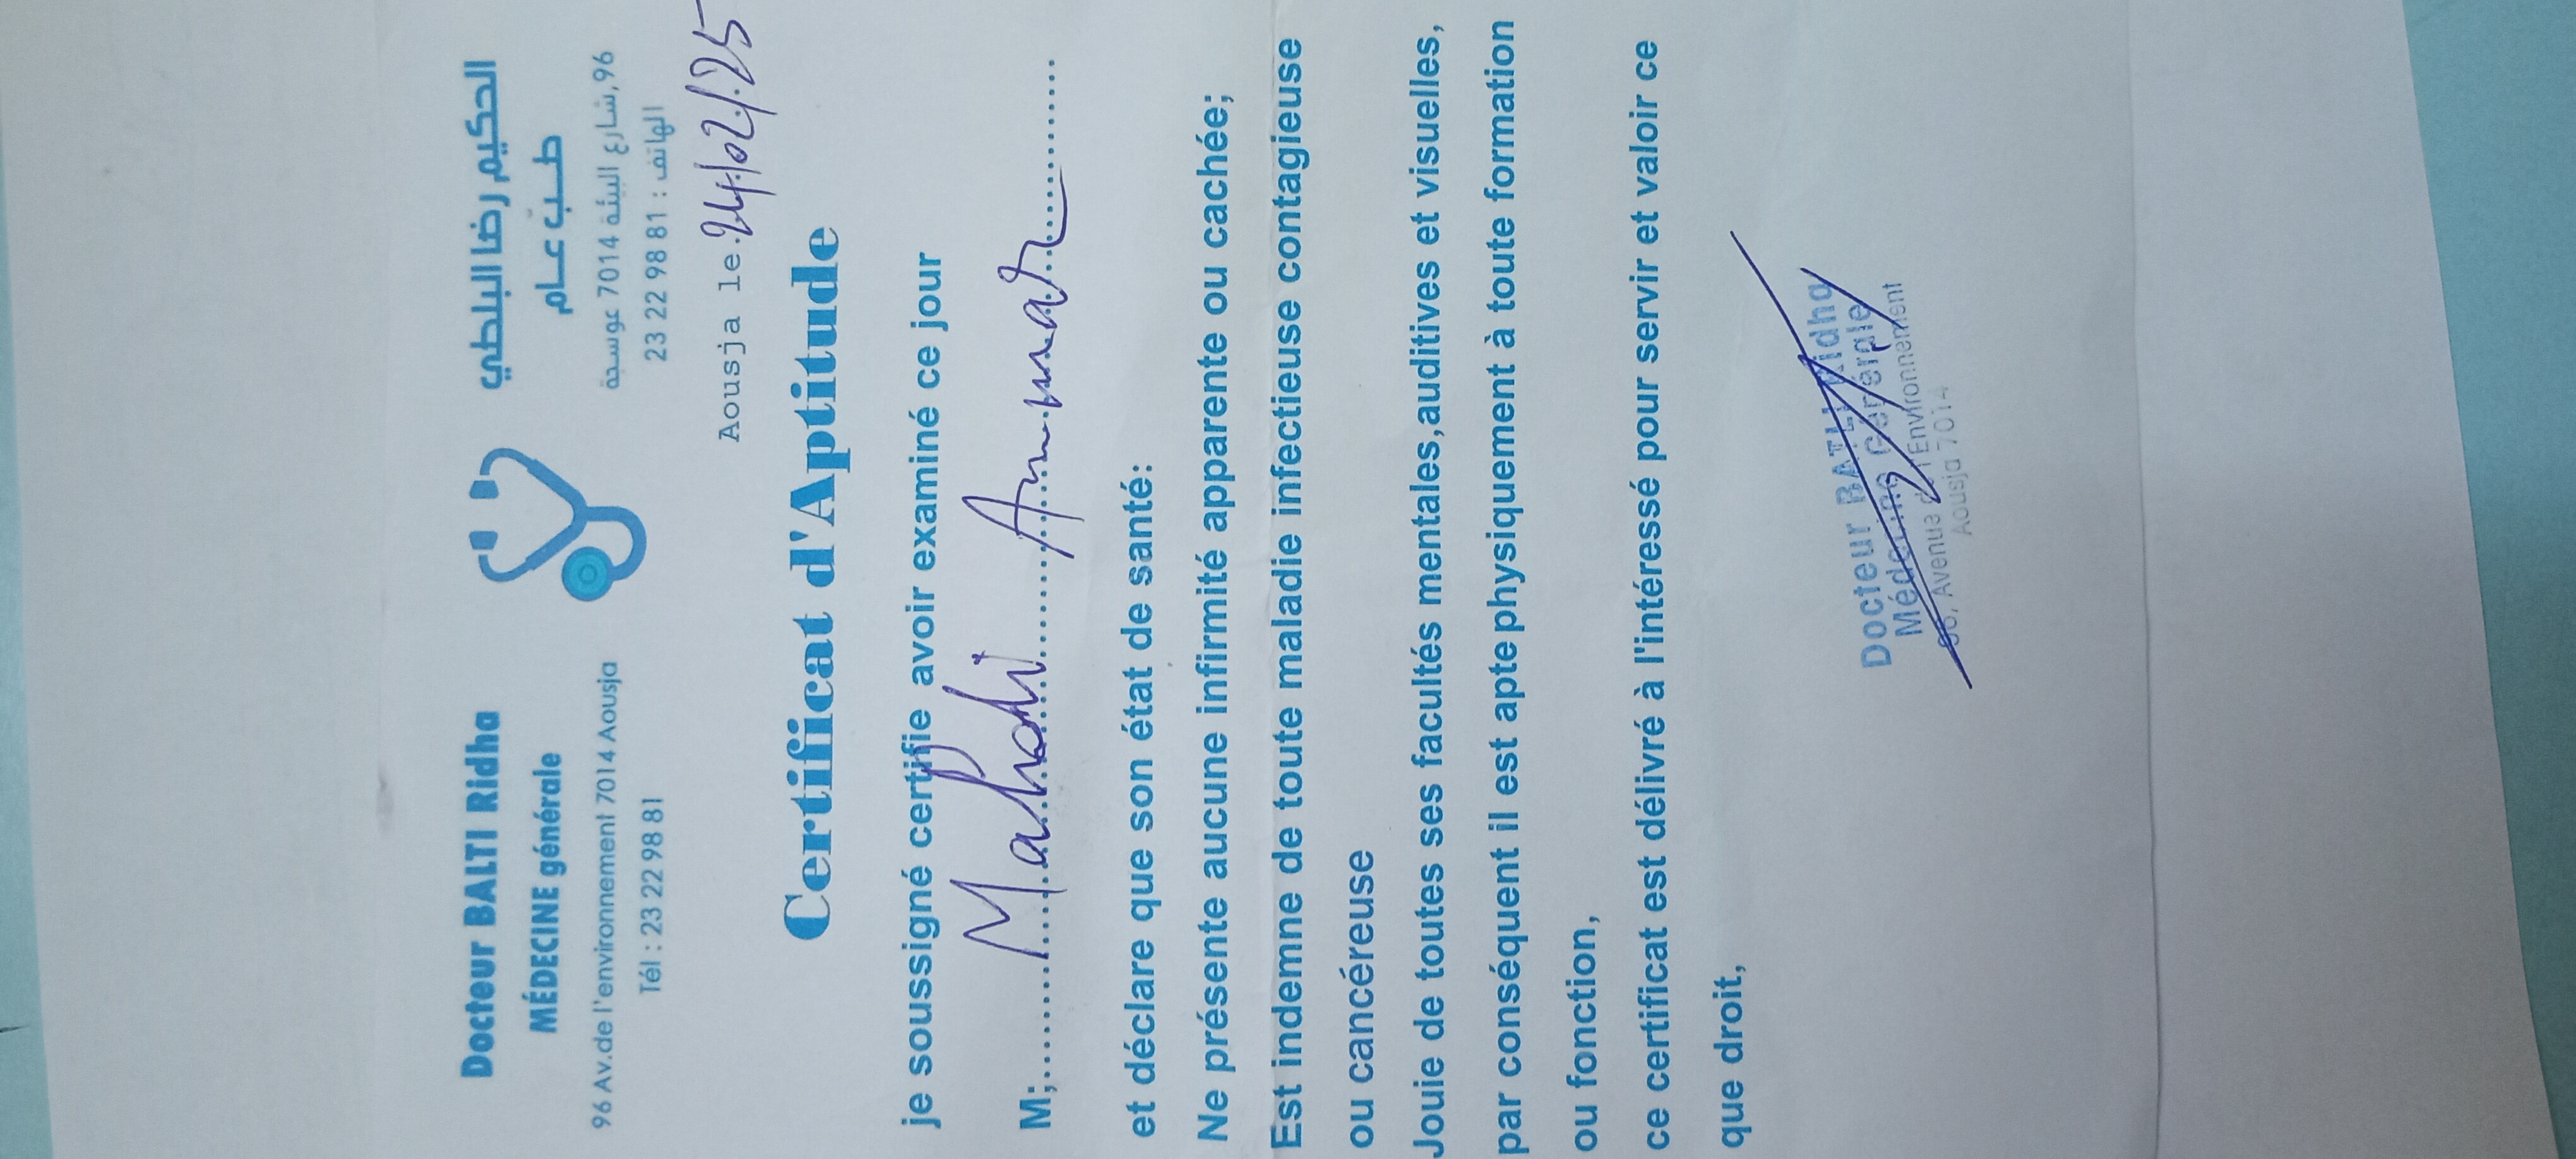 Docteur BALTI Ridha
MÉDECINE générale
96 Av.de l'environnement 7014 Aousja
Tél : 23 22 98 81
الحكيم رضا البلطي
طب عام
96,شارع البيئة 7014 عوسجة
الهاتف : 23 22 98 81
Aousja le 24/02/25
Certificat d'Aptitude
je soussigné certifie avoir examiné ce jour
M;........Mahdi Ammar........
et déclare que son état de santé:
Ne présente aucune infirmité apparente ou cachée;
Est indemne de toute maladie infectieuse contagieuse
ou cancéreuse
Jouie de toutes ses facultés mentales,auditives et visuelles,
par conséquent il est apte physiquement à toute formation
ou fonction,
ce certificat est délivré à l'intéressé pour servir et valoir ce
que droit,
Docteur BALTI Ridha
Médecine Générale
96, Avenue de l'Environnement
Aousja 7014